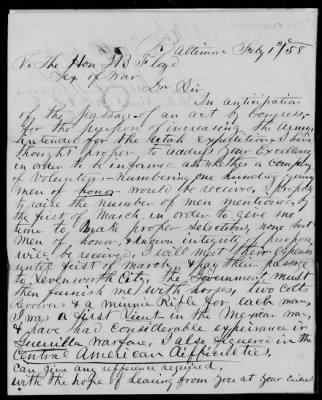 Baltimore Feby 1st/58
To The Hon J B Floyd
Sec of War
Dr Sir
In anticipation
of the passage of an act by Congress
for the purpose of increasing the Army
intended for the Utah expedition I have
thought proper to address your Excellency
in order to be informed, as whether a company
of Volunteers numbering one hundred young
men of honor would be receive. I propose
to raise the number of men mentioned by
the first of March, in order to give me
time to make proper Selections, none but
men of honor, & known integrity of purpose
will be receive, I will meet their expenses
until first of march & pay their passage
to Levenworth City, The Government must
then furnish me with horses, two Colts
Revolvers & a minnie Rifle for each man,
I was a first Lieut in the Mexican war,
& have had considerable expeirance in
Guerrilla warfare, I also figuered in the
Central American difficulties,
Can give any refference required,
with the hope of hearing from you at your